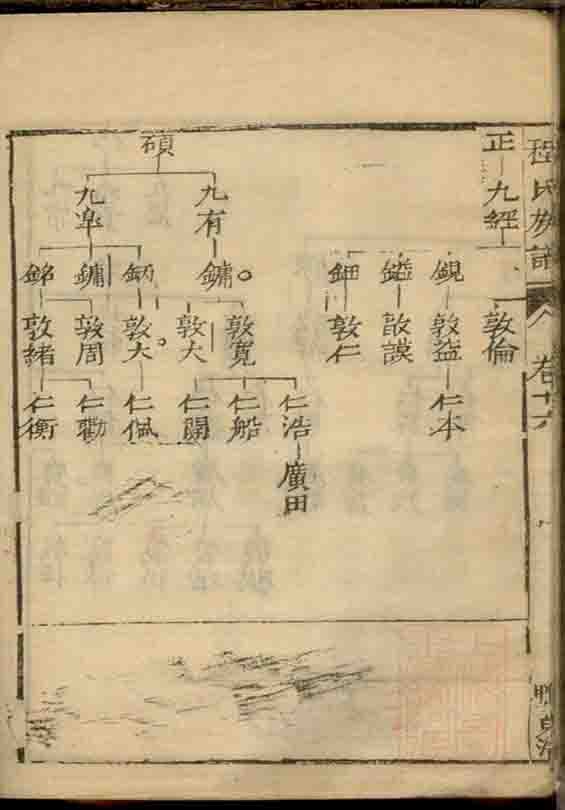 程氏族譜
卷十六
正
九經
敦倫
鋧
敦益
仁本
鎰
敦謨
鈿
敦仁
碩
九有
鏞
敦寬
敦大
仁浩
廣田
仁船
仁開
九皐
鈵
敦大
仁佩
鏞
敦周
仁勸
銘
敦緒
仁衡